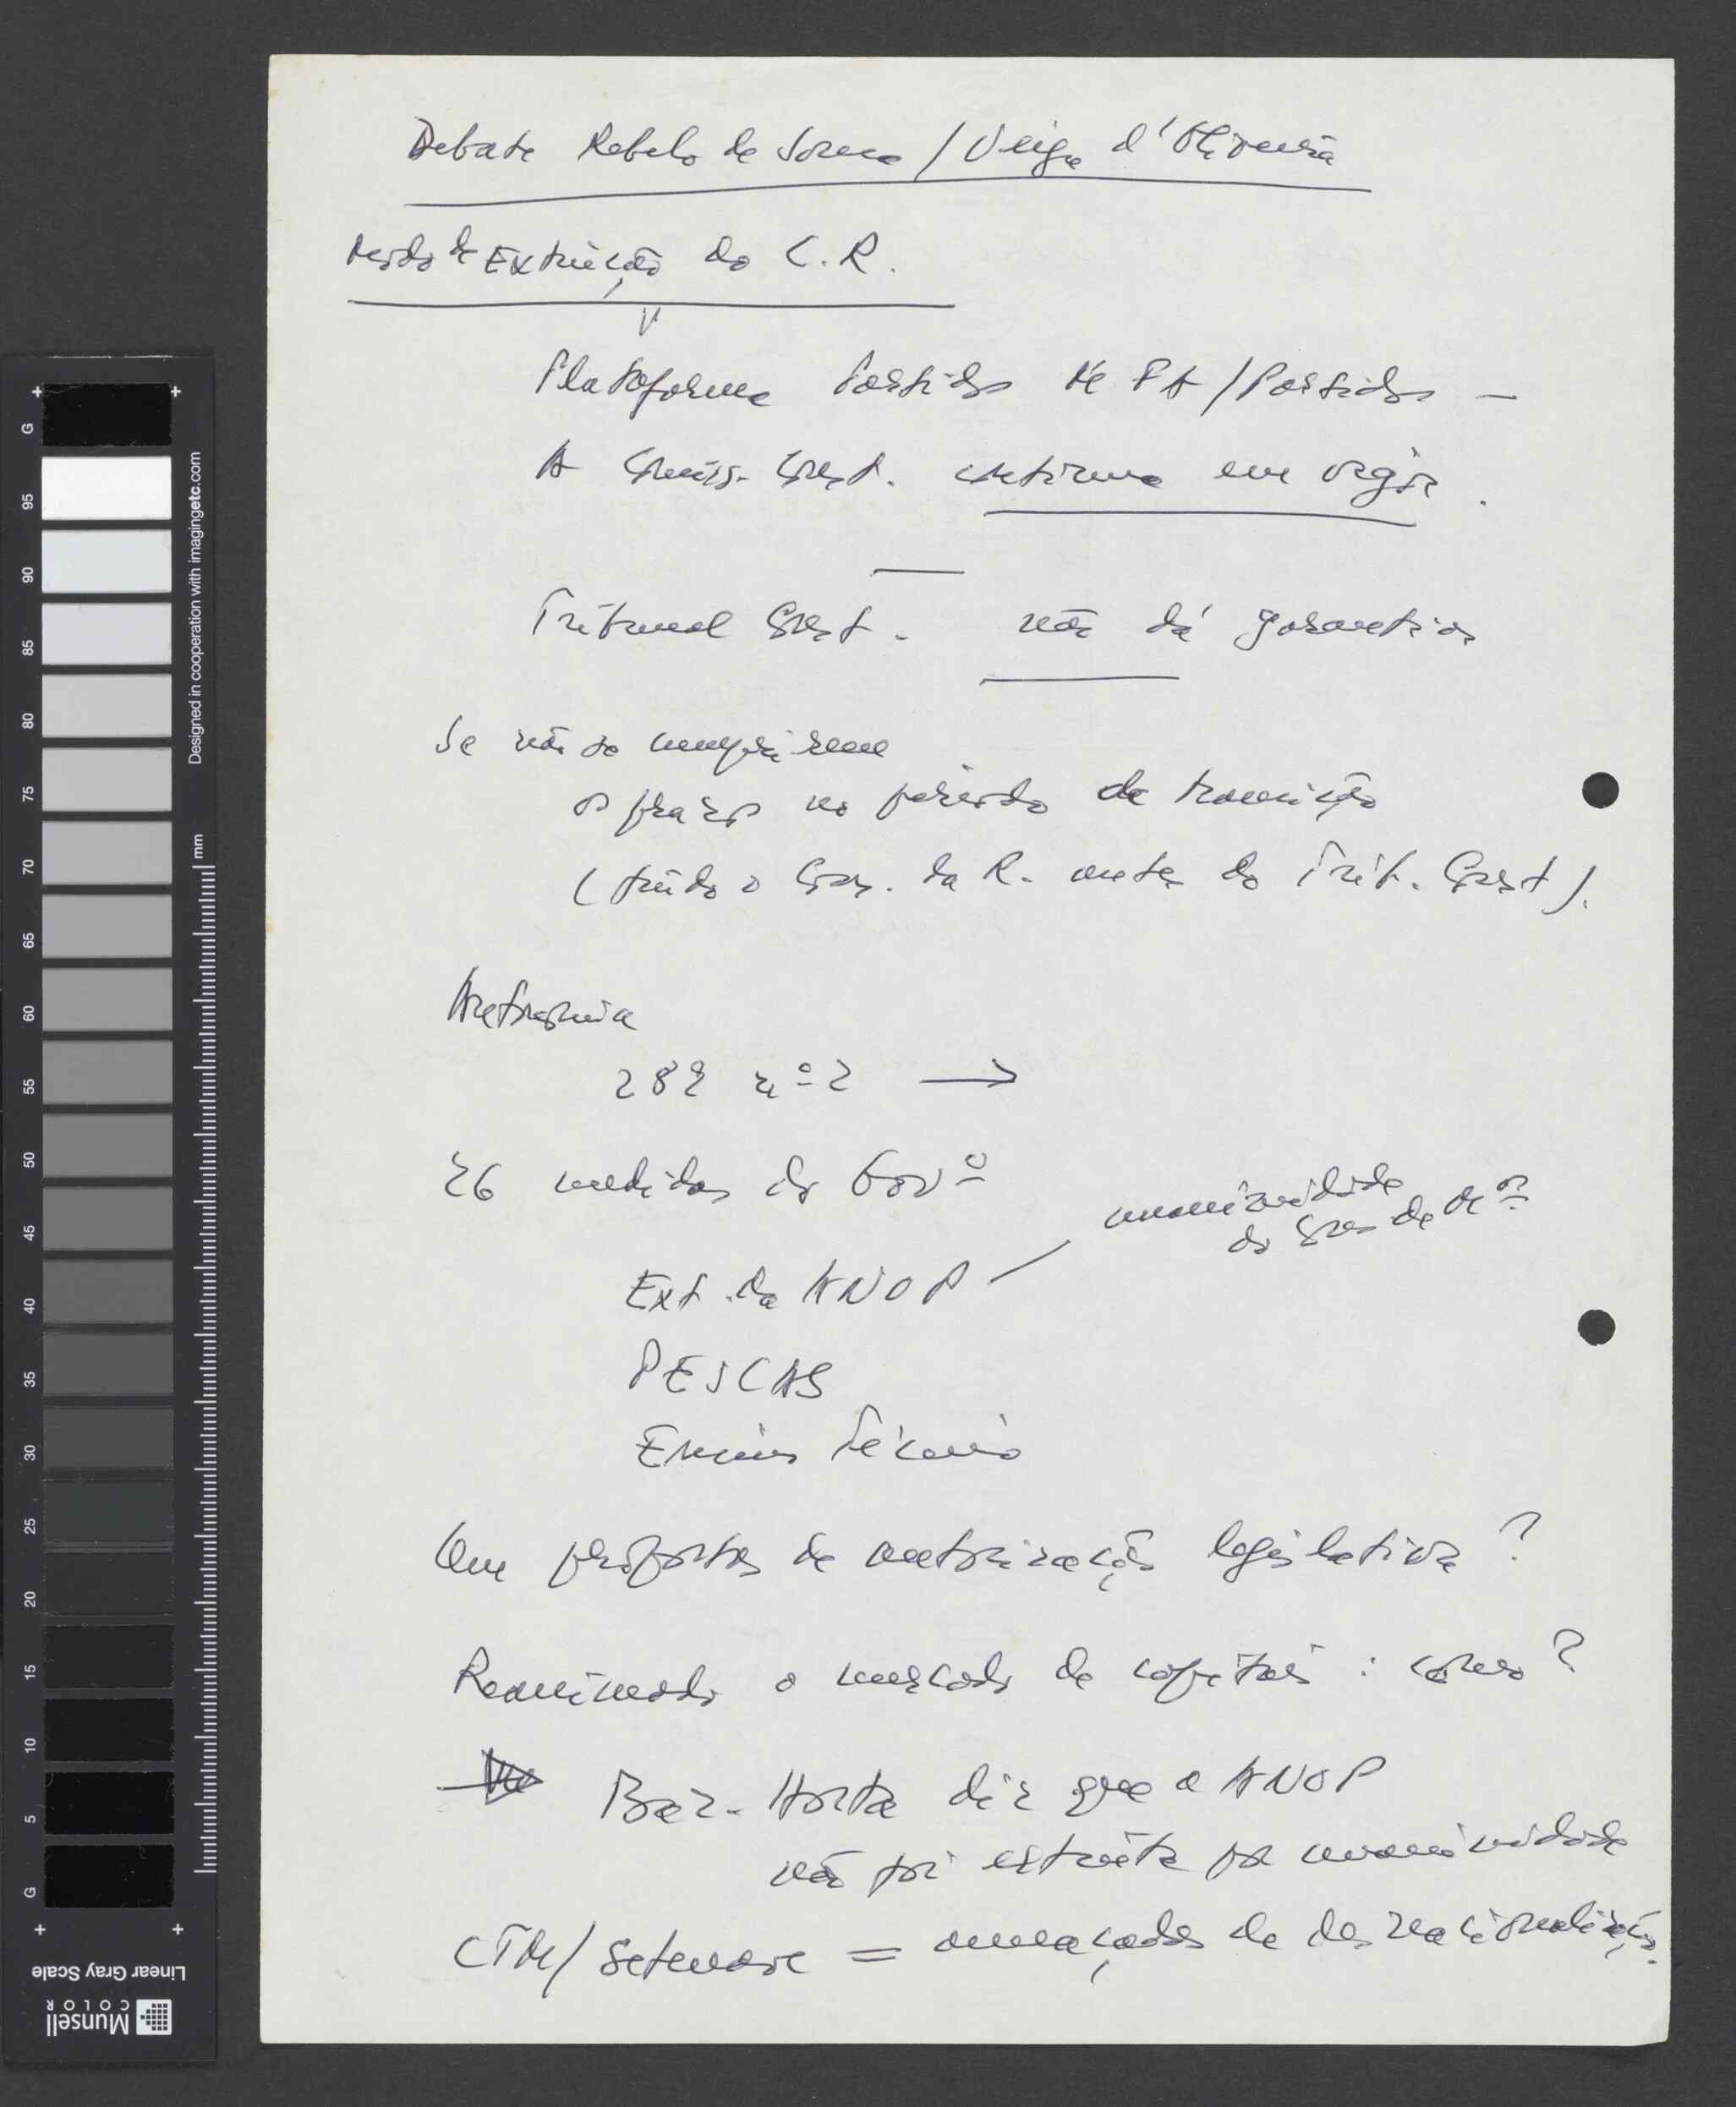 Debate Rebelo de Sousa / Veiga d'Oliveira
Modo de Extinção do C.R.
Plataforma Partidos / Partidos —
A Comiss. Const. continua em vigor.
Tribunal Const. não dá garantias
Se não se cumprirem
os prazos no período de transição
(findo o Cons. da R. antes do Trib. Const).
Metrop
282 nº 2 →
26 medidas do Govº
unanimidade
do Cons de Mº?
Ext. da ANOP
PESCAS
Ensino Técnico
Que propostas de autorização legislativa?
Reanimado o mercado de capitais : como?
Baz. Horta diz que a ANOP
não foi extinta por unanimidade
CTM/Setenave = ameaçadas de desnacionalização.
G
95
90
85
80
75
70
65
60
55
50
45
40
35
30
25
20
15
10
5
G
mm
Designed in cooperation with imagingetc.com
Linear Gray Scale
Munsell
COLOR